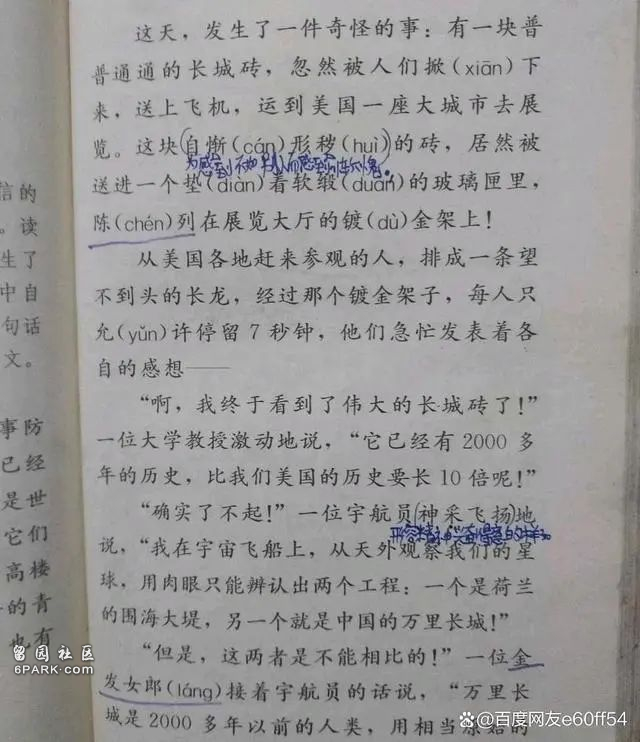 这天，发生了一件奇怪的事：有一块普
普通通的长城砖，忽然被人们掀(xiān)下
来，送上飞机，运到美国一座大城市去展
览。这块(自惭(cán)形秽(huì))的砖，居然被
送进一个垫(diàn)着软缎(duàn)的玻璃匣里，
陈(chén)列在展览大厅的镀(dù)金架上！
从美国各地赶来参观的人，排成一条望
不到头的长龙，经过那个镀金架子，每人只
允(yǔn)许停留7秒钟，他们急忙发表着各
自的感想——
“啊，我终于看到了伟大的长城砖了！”
一位大学教授激动地说，“它已经有2000多
年的历史，比我们美国的历史要长10倍呢！”
“确实了不起！”一位宇航员(神采飞扬)地
说，“我在宇宙飞船上，从天外观察我们的星
球，用肉眼只能辨认出两个工程：一个是荷兰
的围海大堤，另一个就是中国的万里长城！”
“但是，这两者是不能相比的！”一位金
发女郎(láng)接着宇航员的话说，“万里长
城是2000多年以前的人类，用相当原始的
信的
。读
生了
中自
句话
文。
事防
已经
是世
它们
高楼
的青
也有
留园社区
6PARK.COM
百度网友e60ff54